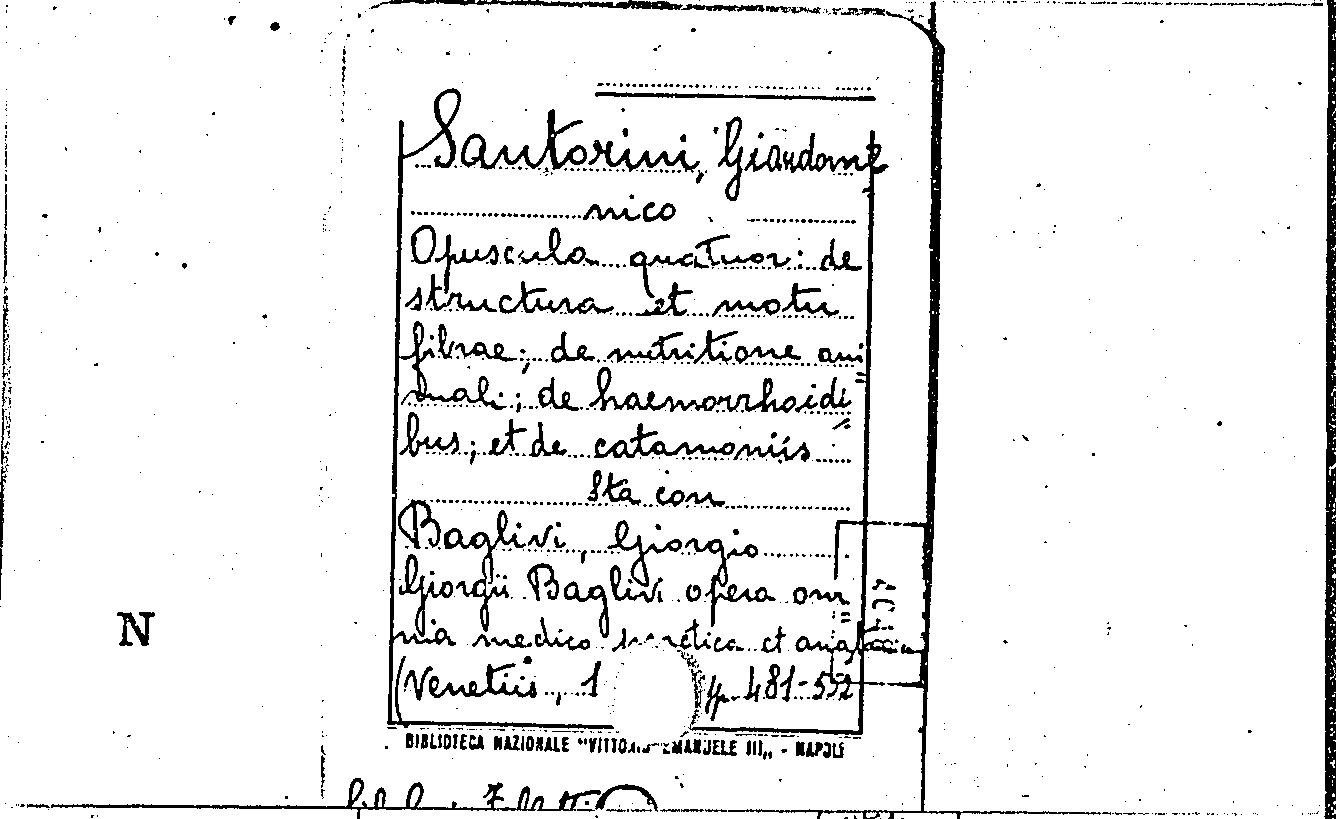 Santorini, Giandome
nico
Opuscula quatuor: de
structura et motu
fibrae; de nutritione ani=
mali; de haemorrhoidi=
bus; et de catamoniis
Sta con
Baglivi, Giorgio
Giorgii Baglivi opera om=
nia medico et anatomica
(Venetiis, 1 pp. 481-552
N
BIBLIOTECA NAZIONALE "VITTORIO EMANUELE III„ - NAPOLI